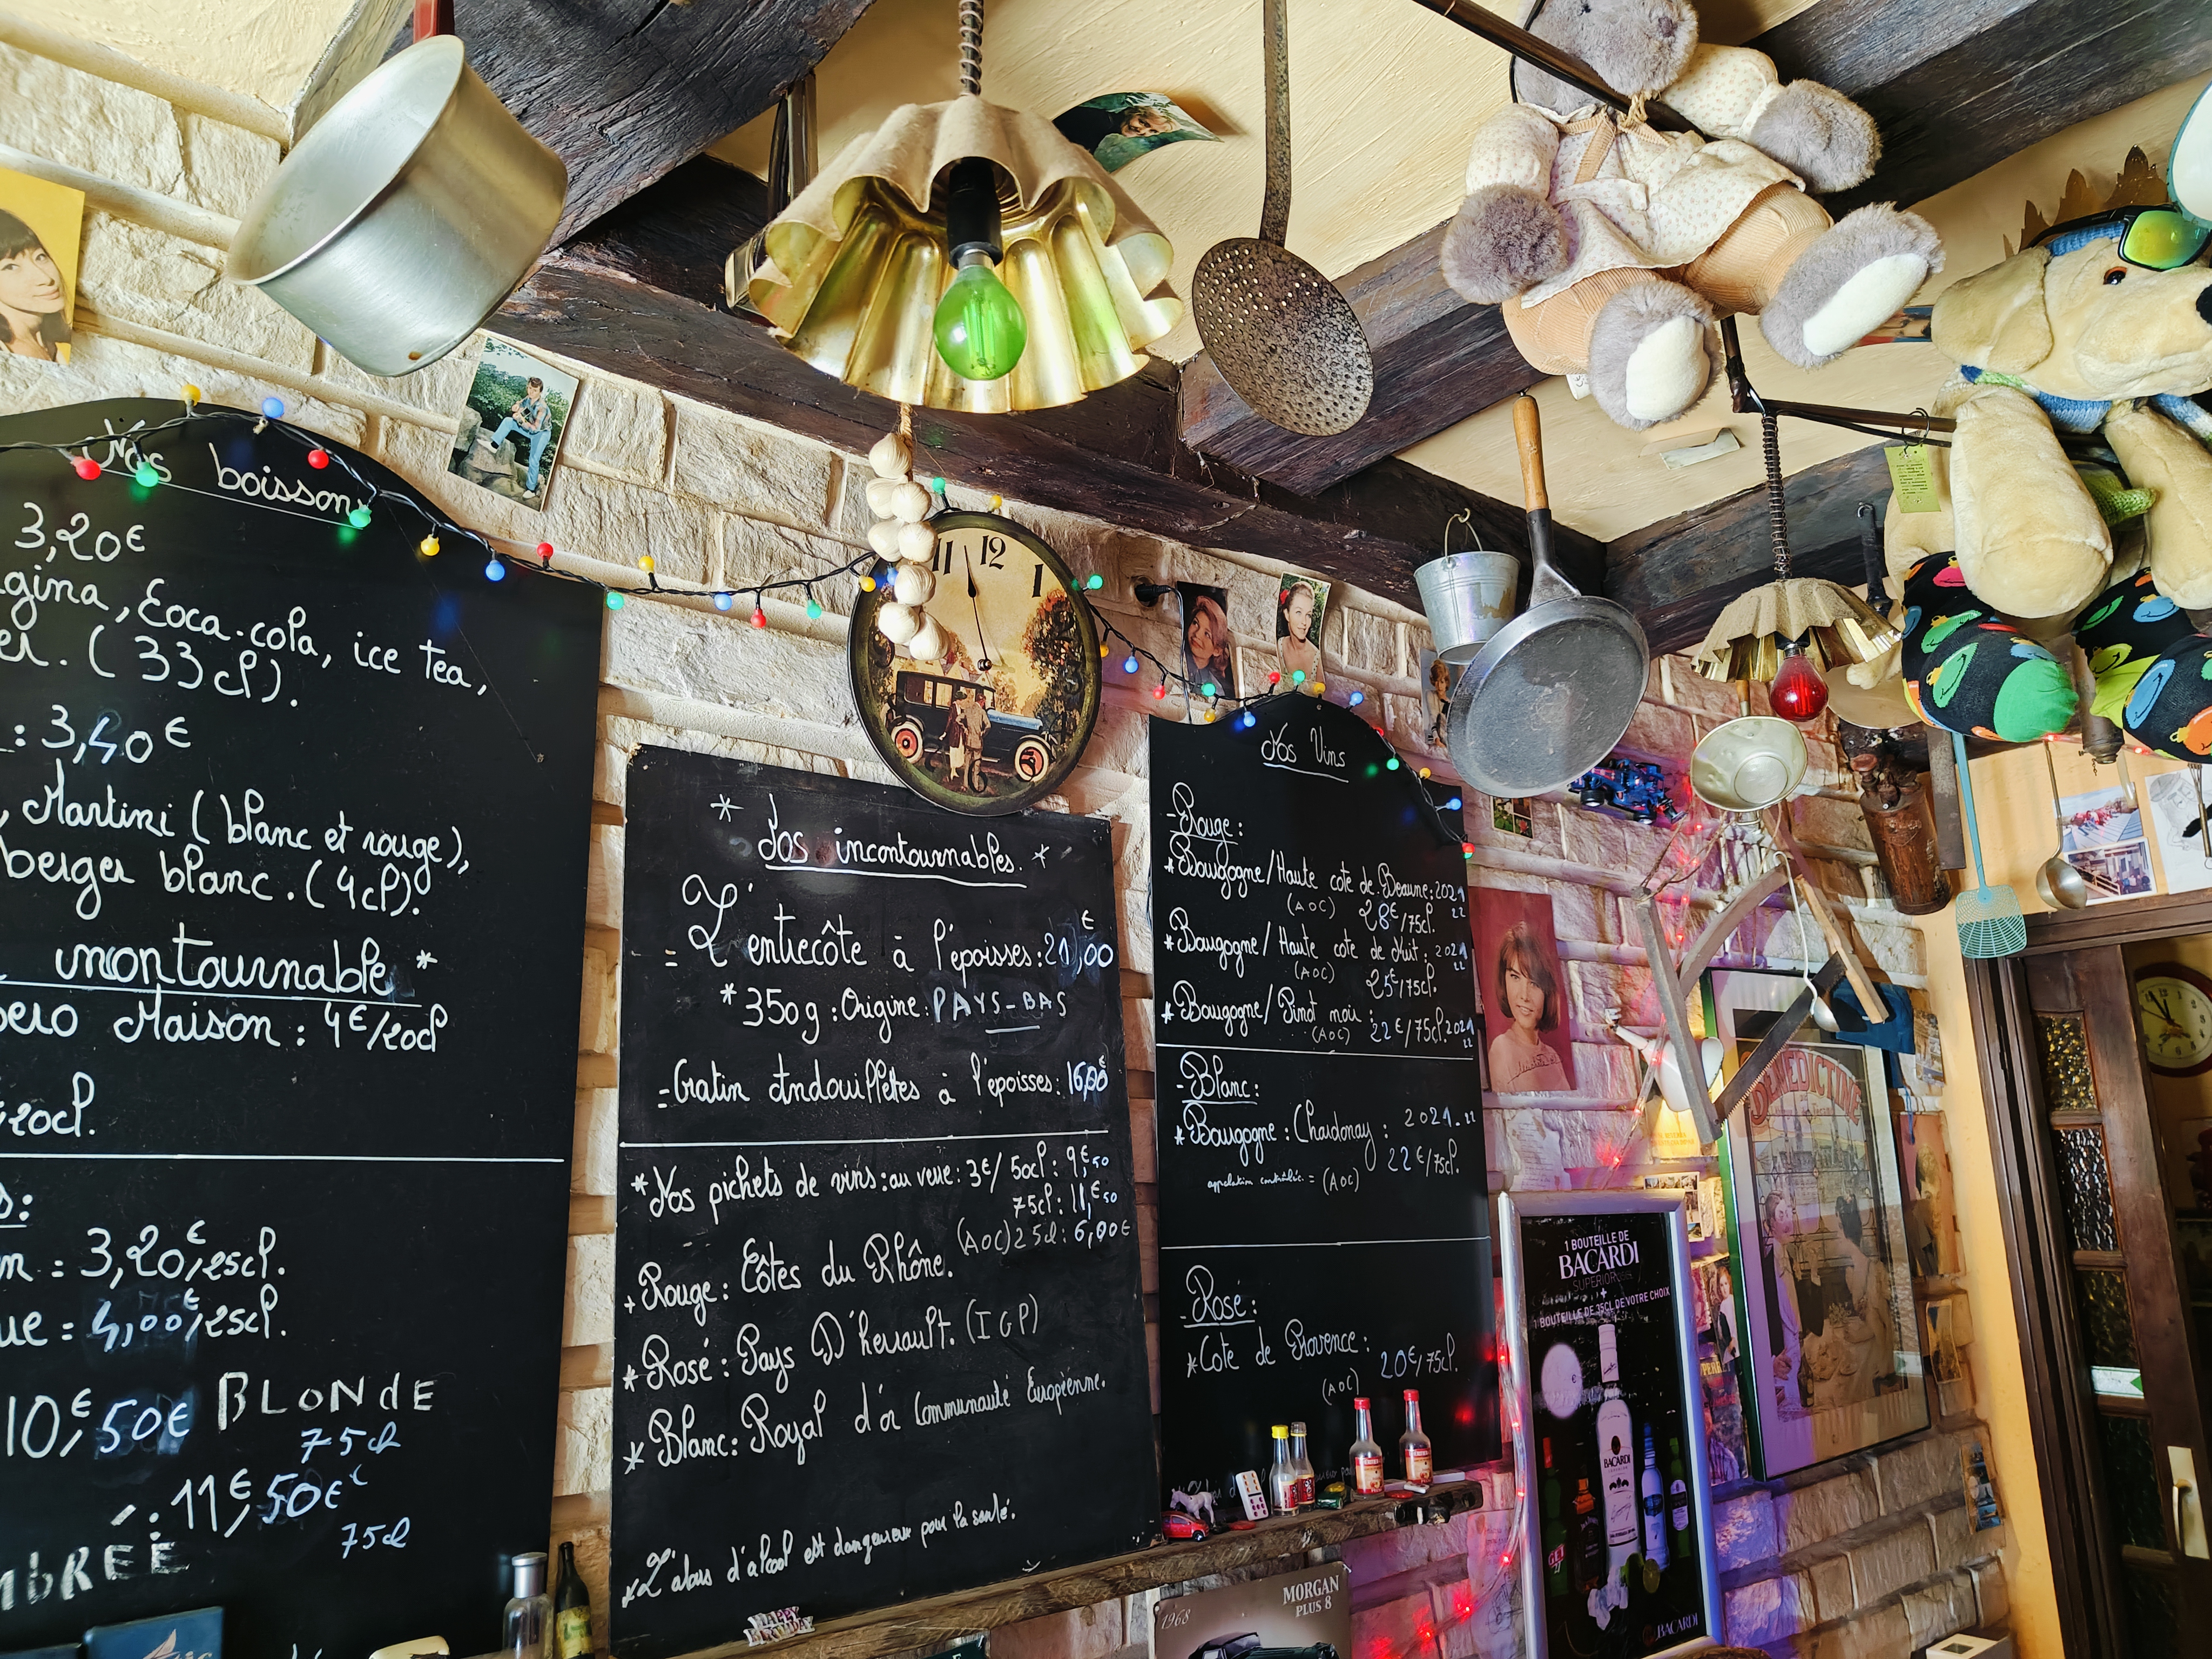 Nos boissons
3,20€
gina, Coca-cola, ice tea,
(33cl).
: 3,40€
, Martini (blanc et rouge),
berger blanc. (4cl).
incontournable *
pero Maison : 4€/20cl
20cl.
= 3,20€/25cl.
ue = 4,00€/25cl.
10,€50€ BLONDE
75cl
11€,50€
75cl
MbRÉE
* Nos incontournables. *
= L'entrecôte à l'époisses: 21,00€
* 350g : Origine: PAYS-BAS
= Gratin Andouillettes à l'époisses: 16,00€
* Nos pichets de vins: au verre: 3€/ 50cl: 9,€50
75cl: 11,€50
(AOC) 25cl: 6,00€
* Rouge: Côtes du Rhône.
* Rosé: Pays D'herault. (IGP)
* Blanc: Royal d'or Communauté Européenne.
* L'abus d'alcool est dangereux pour la santé.
HAPPY
BIRTHDAY
11 12 1
Nos Vins
- Rouge:
* Bourgogne/Haute cote de Beaune: 2021
22
(AOC) 28€/75cl.
* Bourgogne/Haute cote de Nuit: 2021
22
(AOC) 25€/75cl.
* Bourgogne/Pinot noir:
(AOC) 22€/75cl. 2021
22
- Blanc:
* Bourgogne: Chardonay: 2021. 22
22€/75cl.
appelation contrôlée = (AOC)
- Rosé:
* Cote de Provence:
20€/75cl.
(AOC)
1968
MORGAN
PLUS 8
1 BOUTEILLE DE
BACARDI
SUPERIOR
+
1 BOUTEILLE DE 35CL DE VOTRE CHOIX
BACARDI
BACARDI
BÉNÉDICTINE